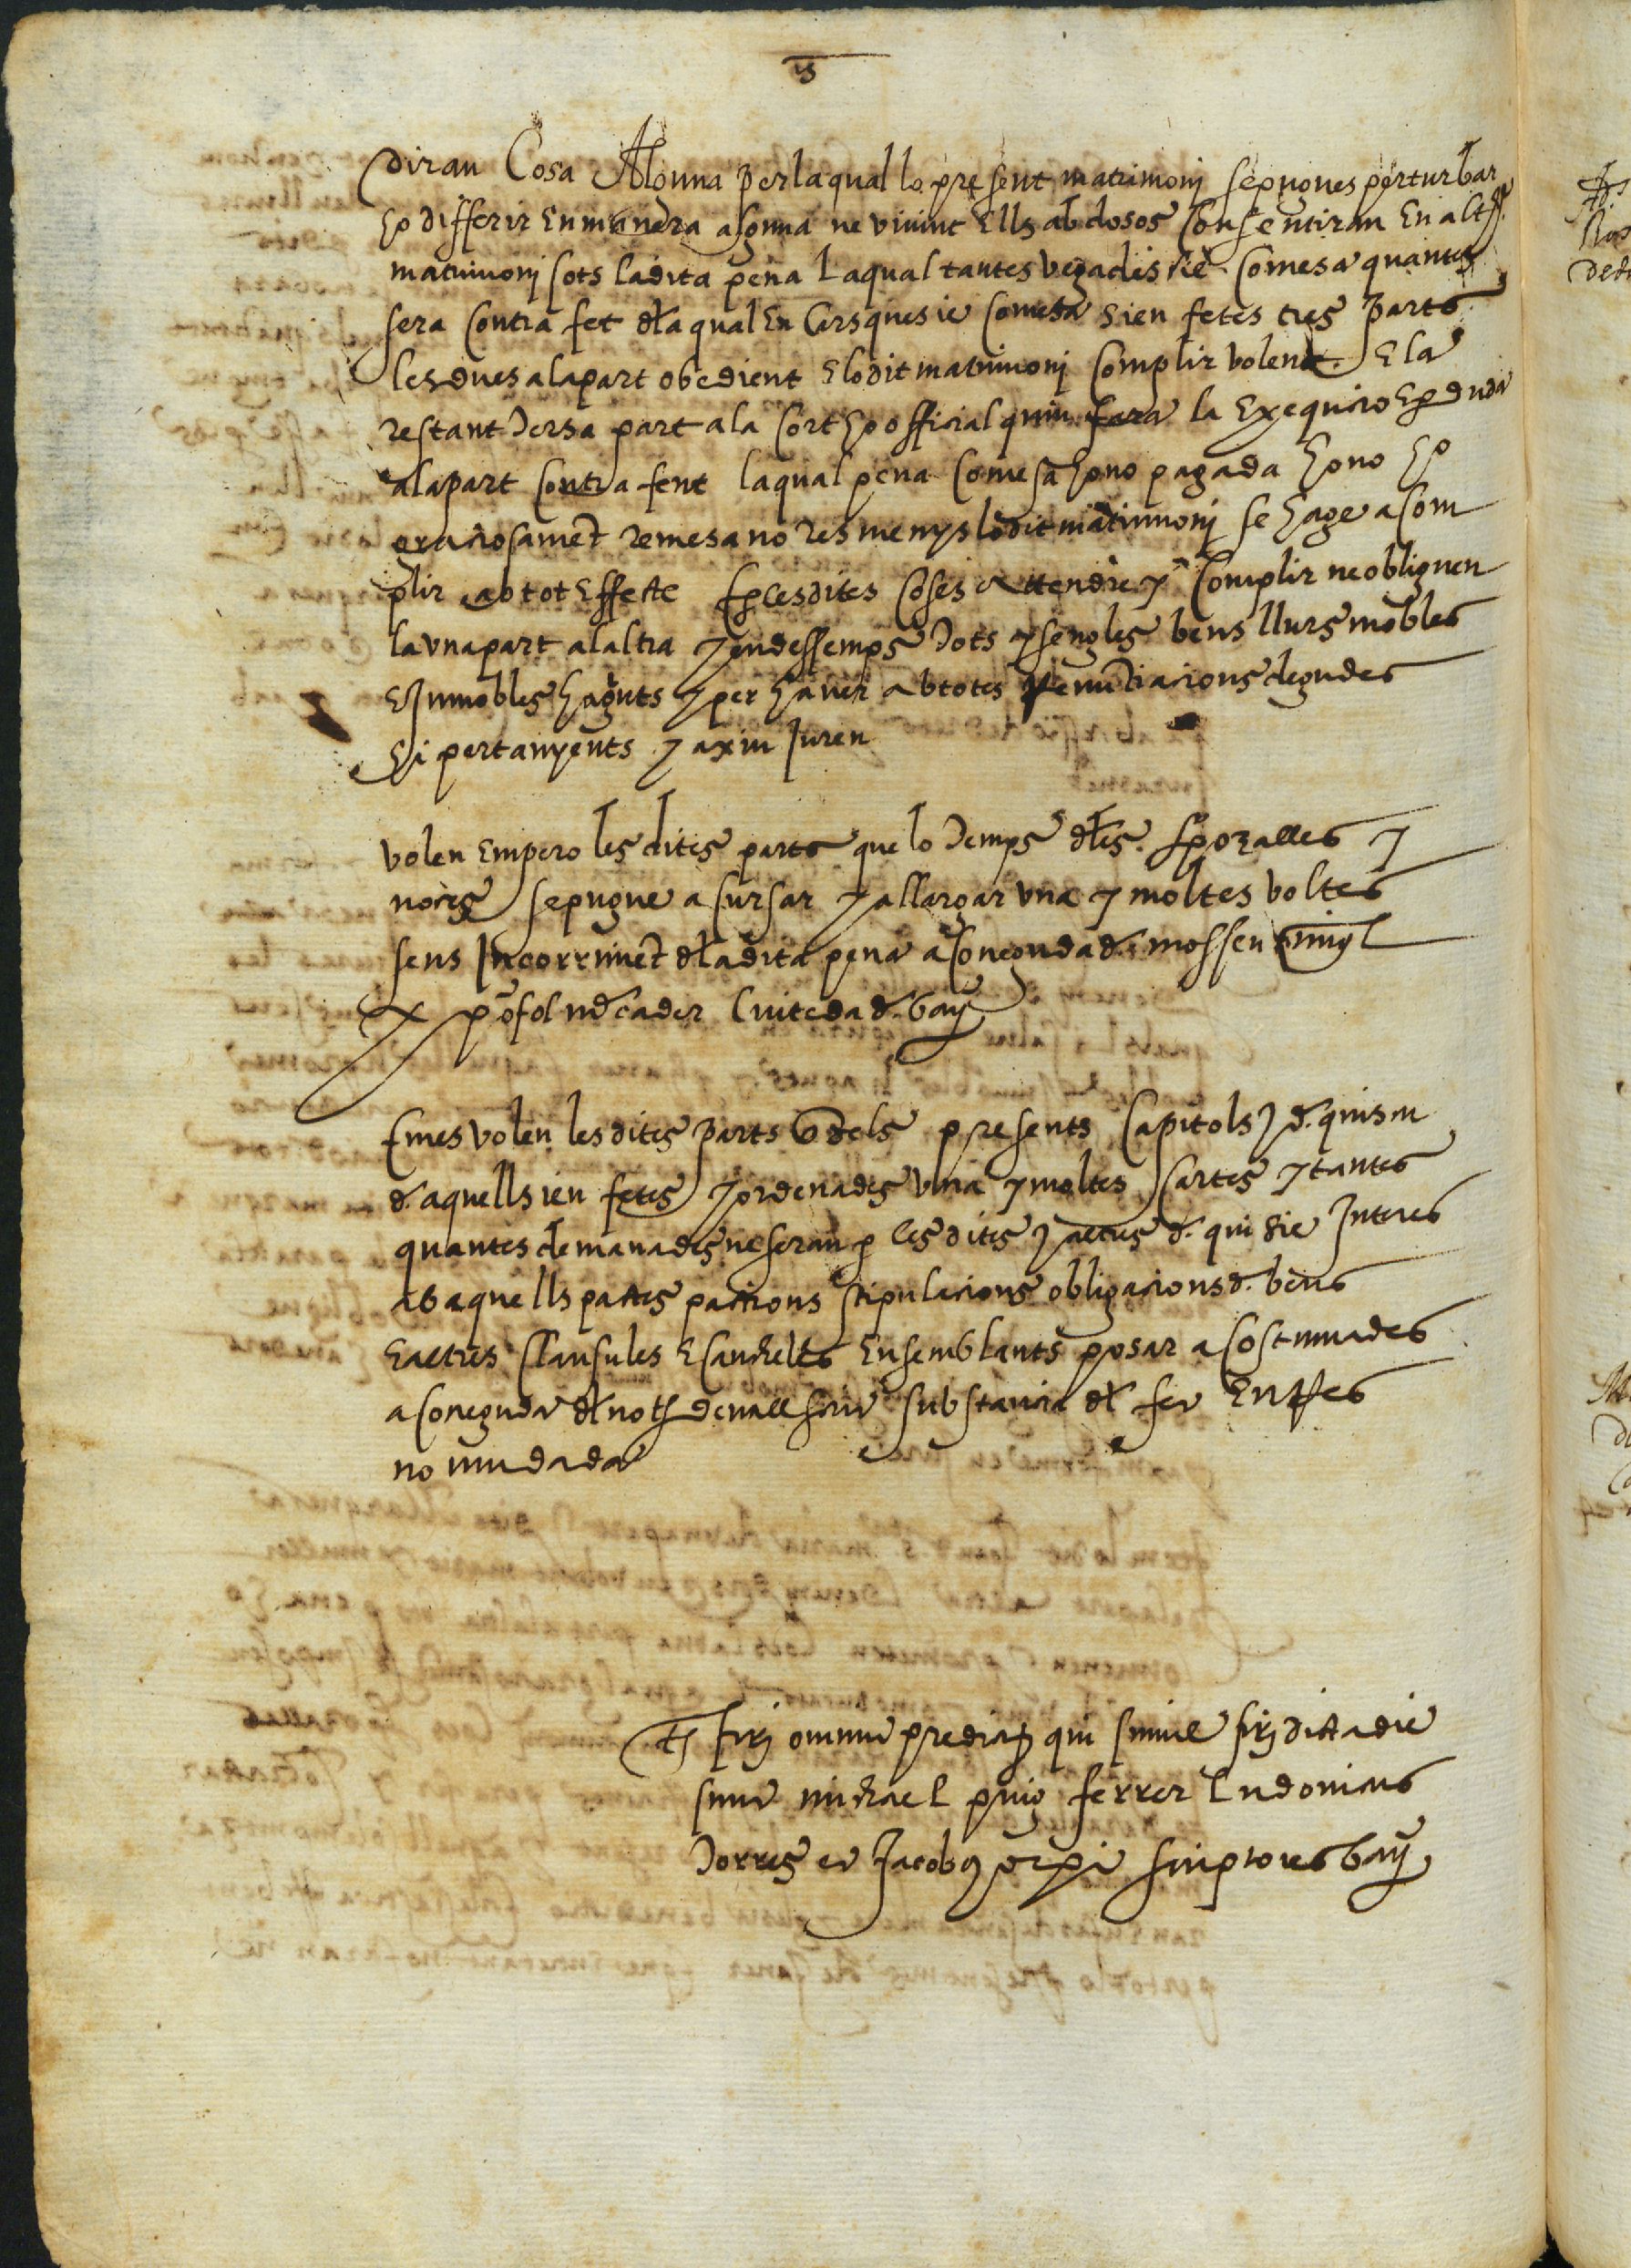 diran Cosa Alguna per la qual lo present matrimoni se pugues perturbar
ho differir En manera alguna ne vivint Ells abdosos Consentiran En altre
matrimoni sots la dita pena La qual tantes vegades sie Comesa quantes
sera Contra fet dla qual En Cars que sie Comesa Sien fetes tres parts
les dues a la part obedient E lo dit matrimoni Complir volent E la
restant Tersa part a la Cort ho official quin fara la Exequcio
a la part Contrafent la qual pena Comesa ho no pagada ho no ho
graciosament remesa no res menys lo dit matrimoni se hage a Com
plir ab tot Effecte E p les dites Coses attendre y Complir ne obliguen
la una part a la altra y endessemps Tots y sengles bens llurs mobles
E Inmobles haguts y per haver ab totes renunciacions degudes
Hi pertanyents y axiu Juren
volen Empero les dites parts que lo Temps dles Sposalles y
noces se pugue a Cursar y allargar una y moltes voltes
sens Incorriment dla dita pena a Coneguda d. mossen
mercader Ciuteda d. bar
E mes volen les dites parts q dels presents Capitols y d. quiscu
d. aquells sien fetes y ordenades una y moltes Cartes y tantes
quantes demanades ne seran p les dites y altres d. qui sie Interes
ab aquells pactes paccions stipulacions obligacions d. bens
E altres Clausules E Cauteles En semblants posar a Costumades
a Coneguda dl not devall scrit substancia dl fet En res
no mudada
Ts firj omnium predictor qui simul firj dicta die
sunt michael puig ferrer Ludovicus
Torres et Jacobus scriptores bar